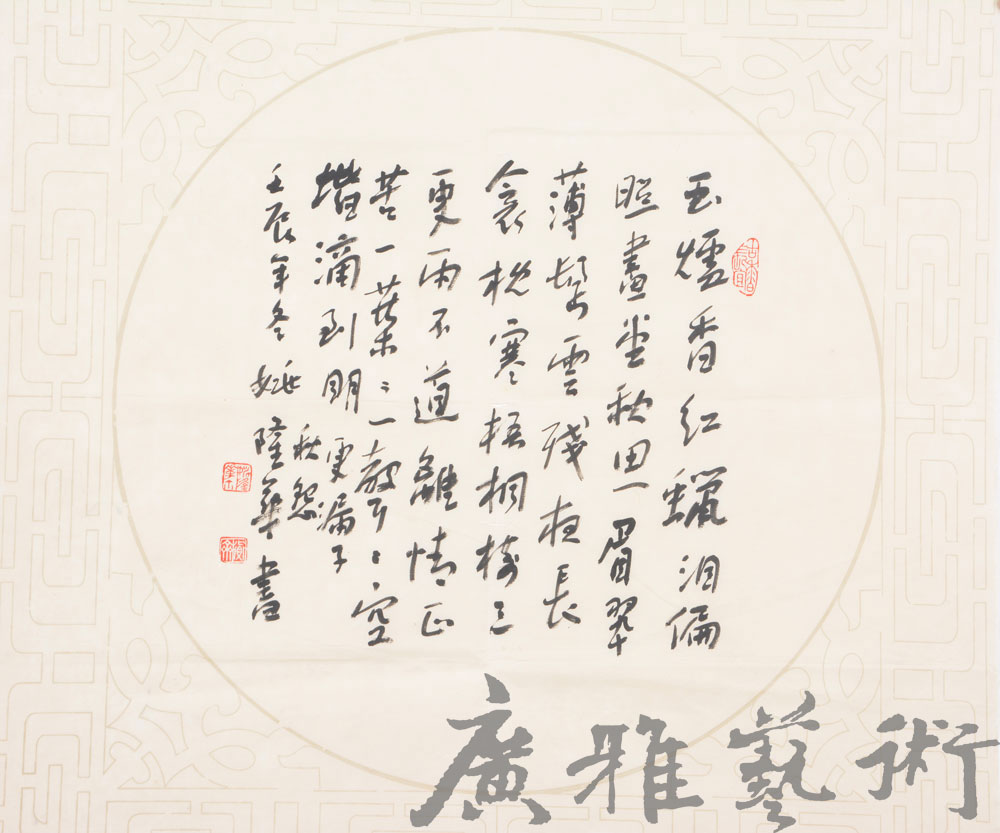 玉爐香紅蠟泪偏
照畫堂秋思眉翠
薄鬢雲殘夜長
衾枕寒梧桐樹三
更雨不道離情正
苦一葉〻一聲〻空
階滴到明更漏子
秋怨
壬辰年冬姚隆華書
廣雅藝術